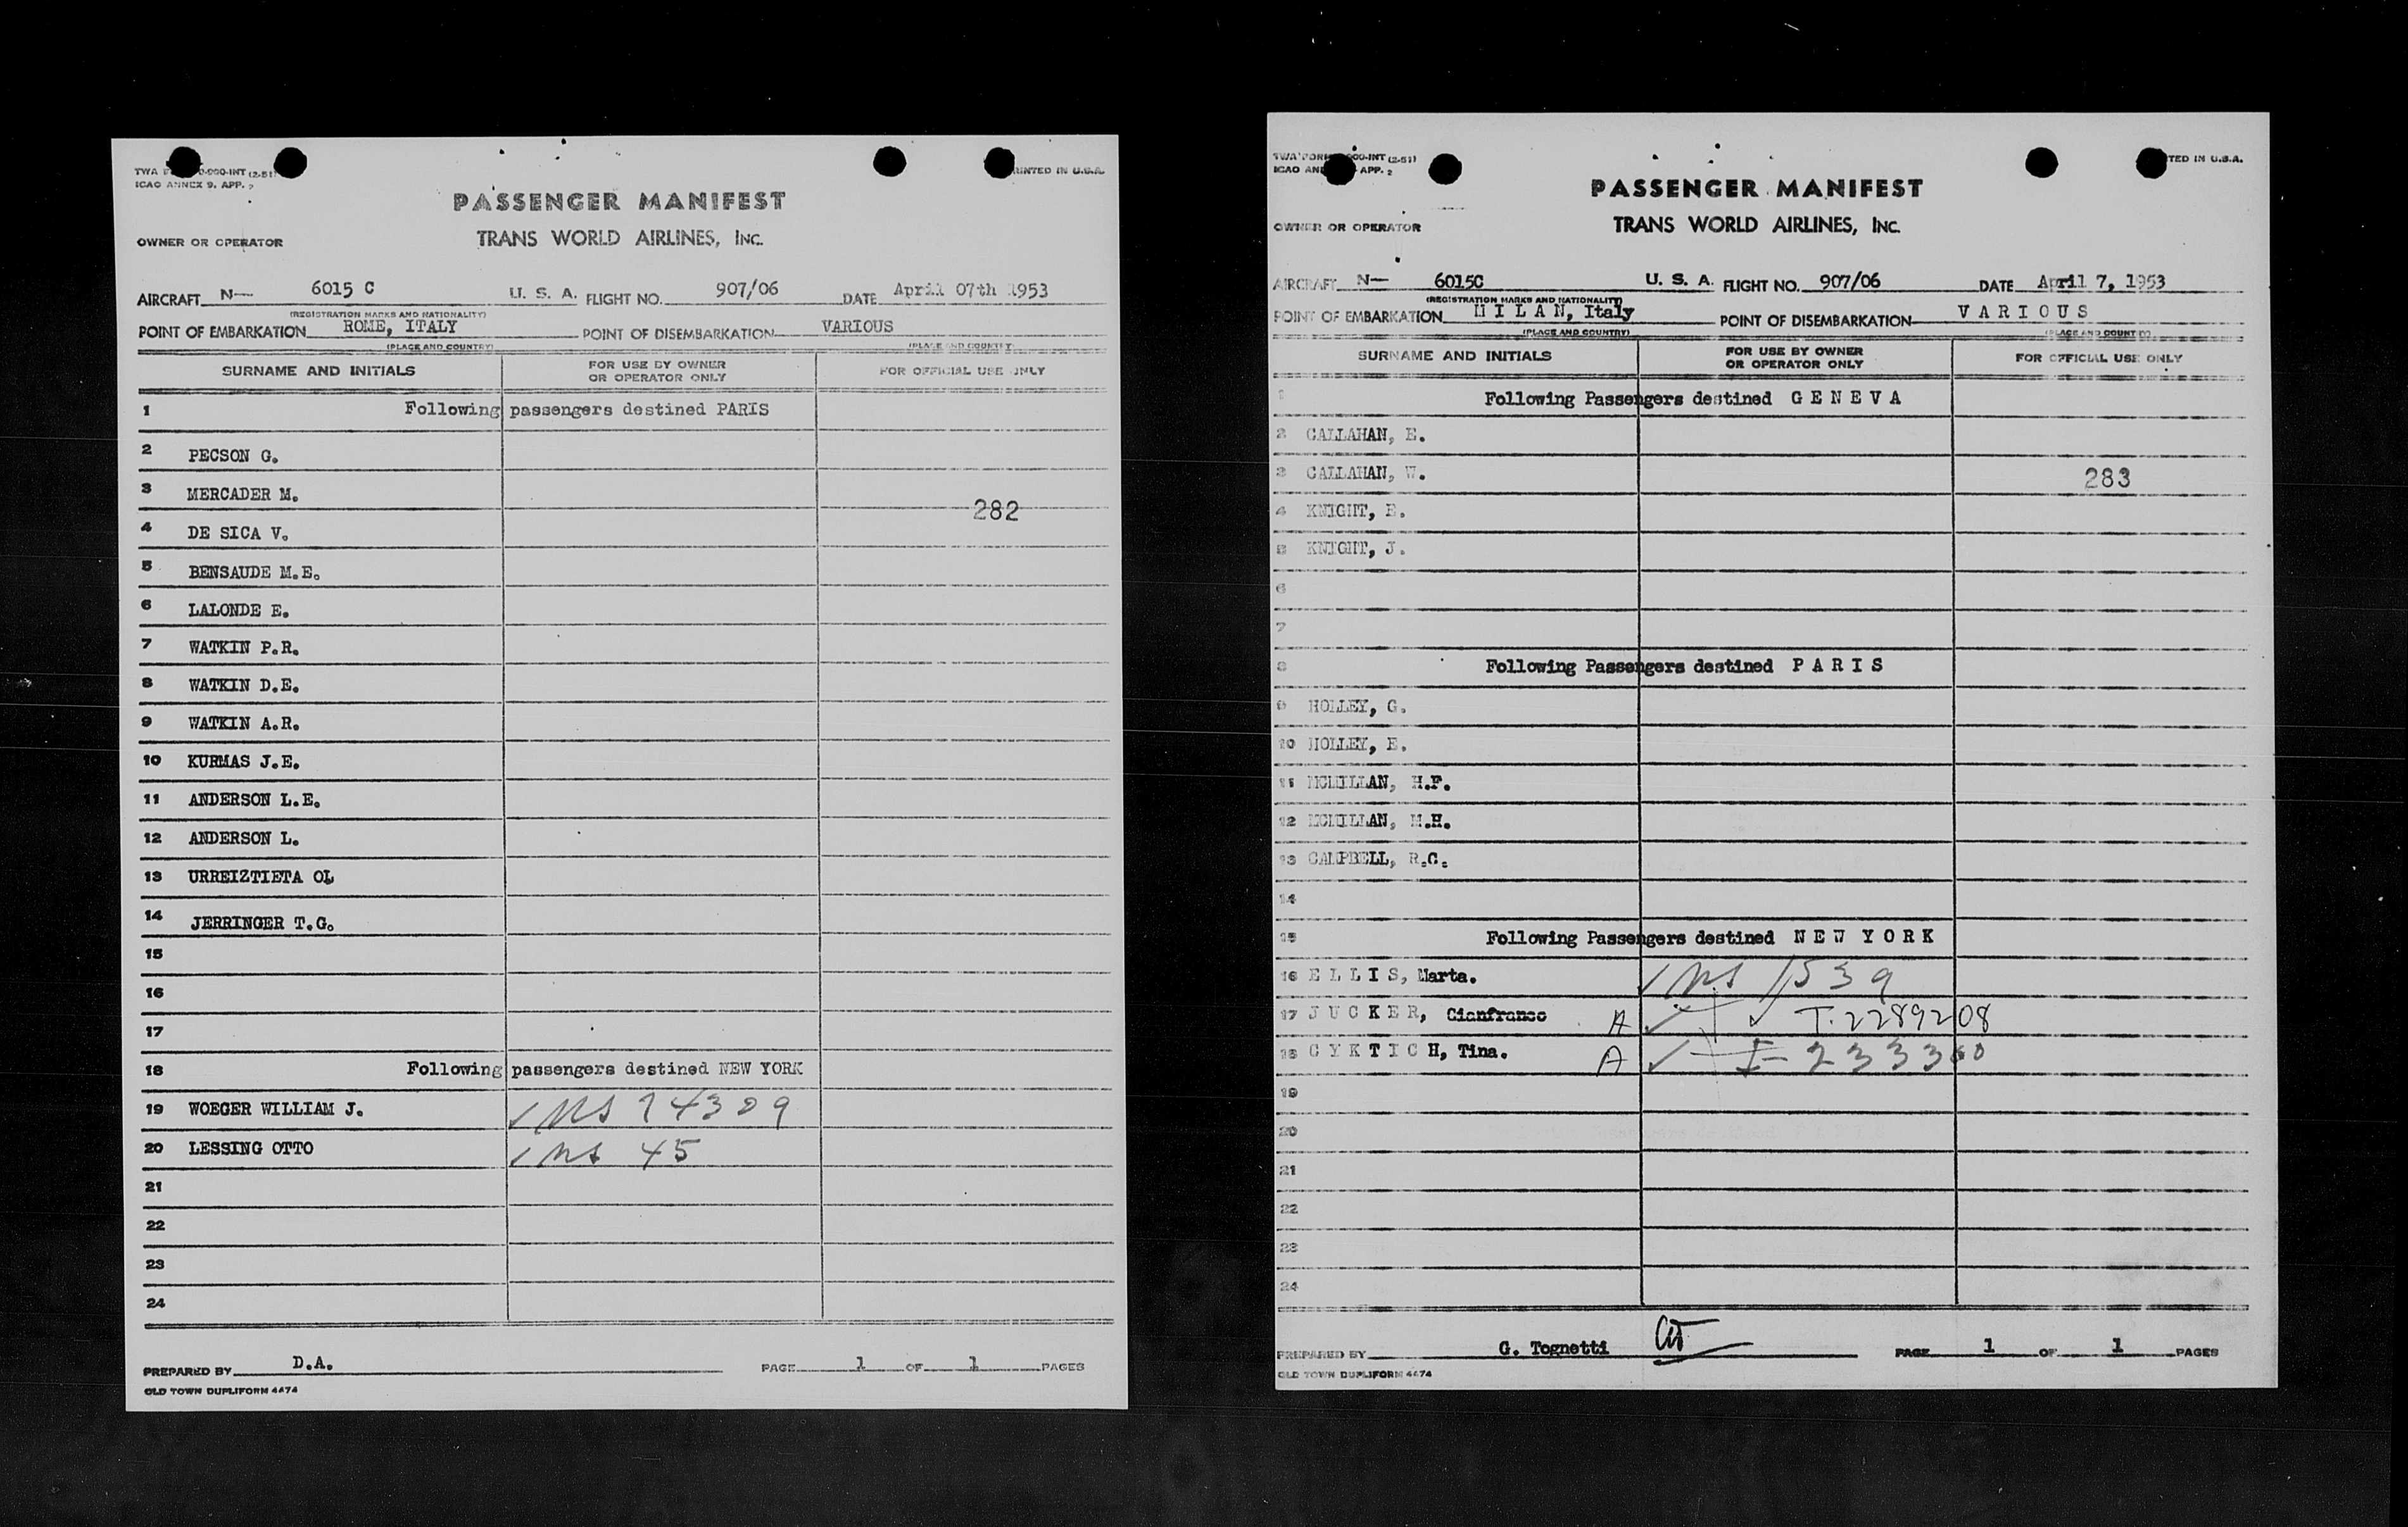 PRINTED IN U.S.A.
ICAO ANNEX 9. APP. 2
PASSENGER MANIFEST
OWNER OR OPERATOR
TRANS WORLD AIRLINES, INC.
AIRCRAFT N— 6015 C U. S. A. FLIGHT NO. 907/06 DATE April 07th 1953
(REGISTRATION MARKS AND NATIONALITY)
POINT OF EMBARKATION ROME, ITALY POINT OF DISEMBARKATION VARIOUS
(PLACE AND COUNTRY) (PLACE AND COUNTRY)
SURNAME AND INITIALS FOR USE BY OWNER OR OPERATOR ONLY FOR OFFICIAL USE ONLY
1 Following passengers destined PARIS
2 PECSON G.
3 MERCADER M.
282
4 DE SICA V.
5 BENSAUDE M.E.
6 LALONDE E.
7 WATKIN P.R.
8 WATKIN D.E.
9 WATKIN A.R.
10 KURMAS J.E.
11 ANDERSON L.E.
12 ANDERSON L.
13 URREIZTIETA OL
14 JERRINGER T.G.
15
16
17
18 Following passengers destined NEW YORK
19 WOEGER WILLIAM J.
20 LESSING OTTO 45
21
22
23
24
PREPARED BY D.A. PAGE 1 OF 1 PAGES
OLD TOWN DUPLIFORM 4474
TED IN U.S.A.
PASSENGER MANIFEST
OWNER OR OPERATOR
TRANS WORLD AIRLINES, INC.
AIRCRAFT N— 6015C U. S. A. FLIGHT NO. 907/06 DATE April 7, 1953
(REGISTRATION MARKS AND NATIONALITY)
POINT OF EMBARKATION M I L A N, Italy POINT OF DISEMBARKATION V A R I O U S
(PLACE AND COUNTRY) (PLACE AND COUNTRY)
SURNAME AND INITIALS FOR USE BY OWNER OR OPERATOR ONLY FOR OFFICIAL USE ONLY
1 Following Passengers destined G E N E V A
2 CALLAHAN, E.
3 CALLAHAN, W. 283
4 KNIGHT, E.
5 KNIGHT, J.
6
7
8 Following Passengers destined P A R I S
9 HOLLEY, G.
10 HOLLEY, E.
11 MCMILLAN, H.F.
12 MCMILLAN, M.H.
13 CAMPBELL, R.C.
14
15 Following Passengers destined N E W Y O R K
16 E L L I S, Marta. 1539
17 J U C K E R, Gianfranco A T.2289208
18 C Y K T I C H, Tina. A
19
20
21
22
23
24
PREPARED BY G. Tognetti PAGE 1 OF 1 PAGES
OLD TOWN DUPLIFORM 4474